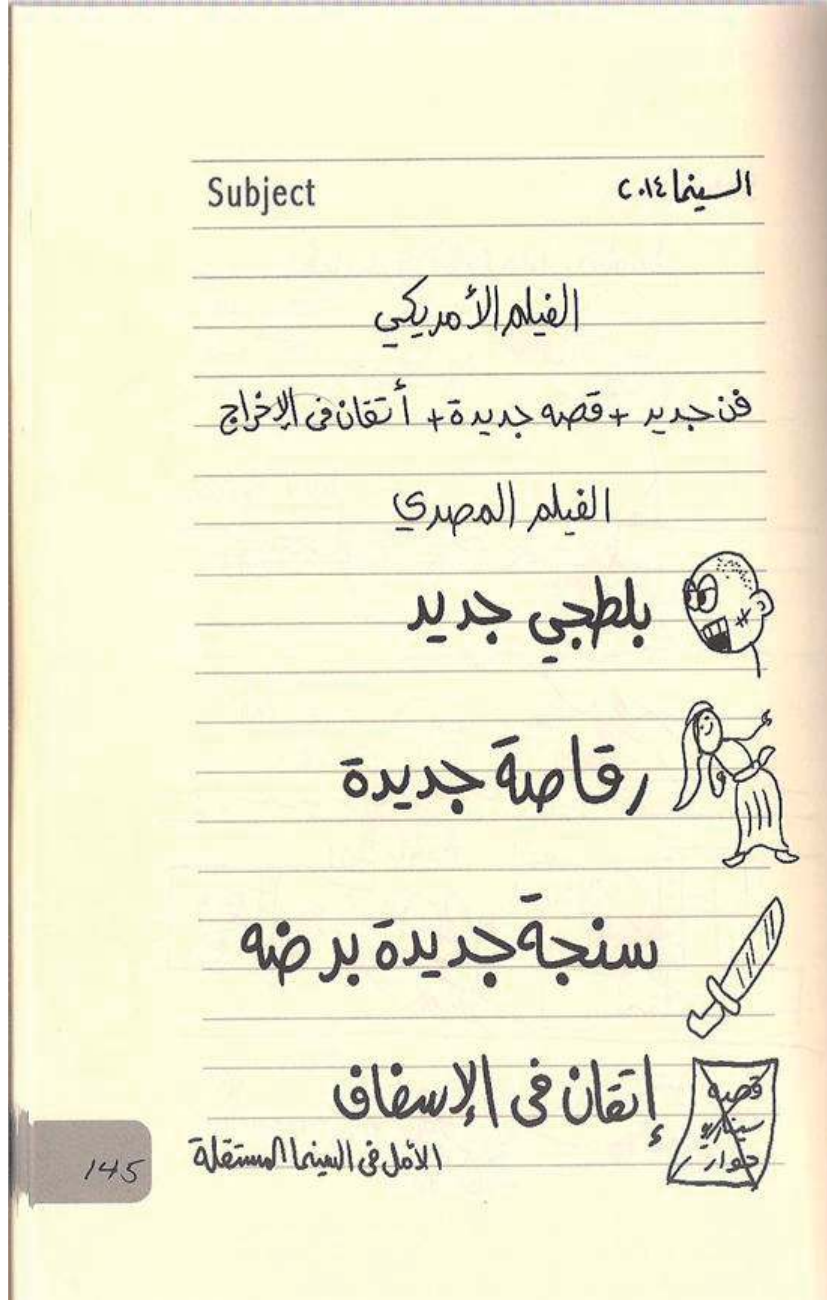 Subject السينما ٢٠١٤
الفيلم الأمريكي
فن جديد + قصه جديدة + أتقان فى الإخراج
الفيلم المصري
بلطجي جديد
رقاصة جديدة
سنجة جديدة برضه
إتقان فى الإسفاف
قصه
سيناريو
حوار
الأمل فى السينما المستقلة
145